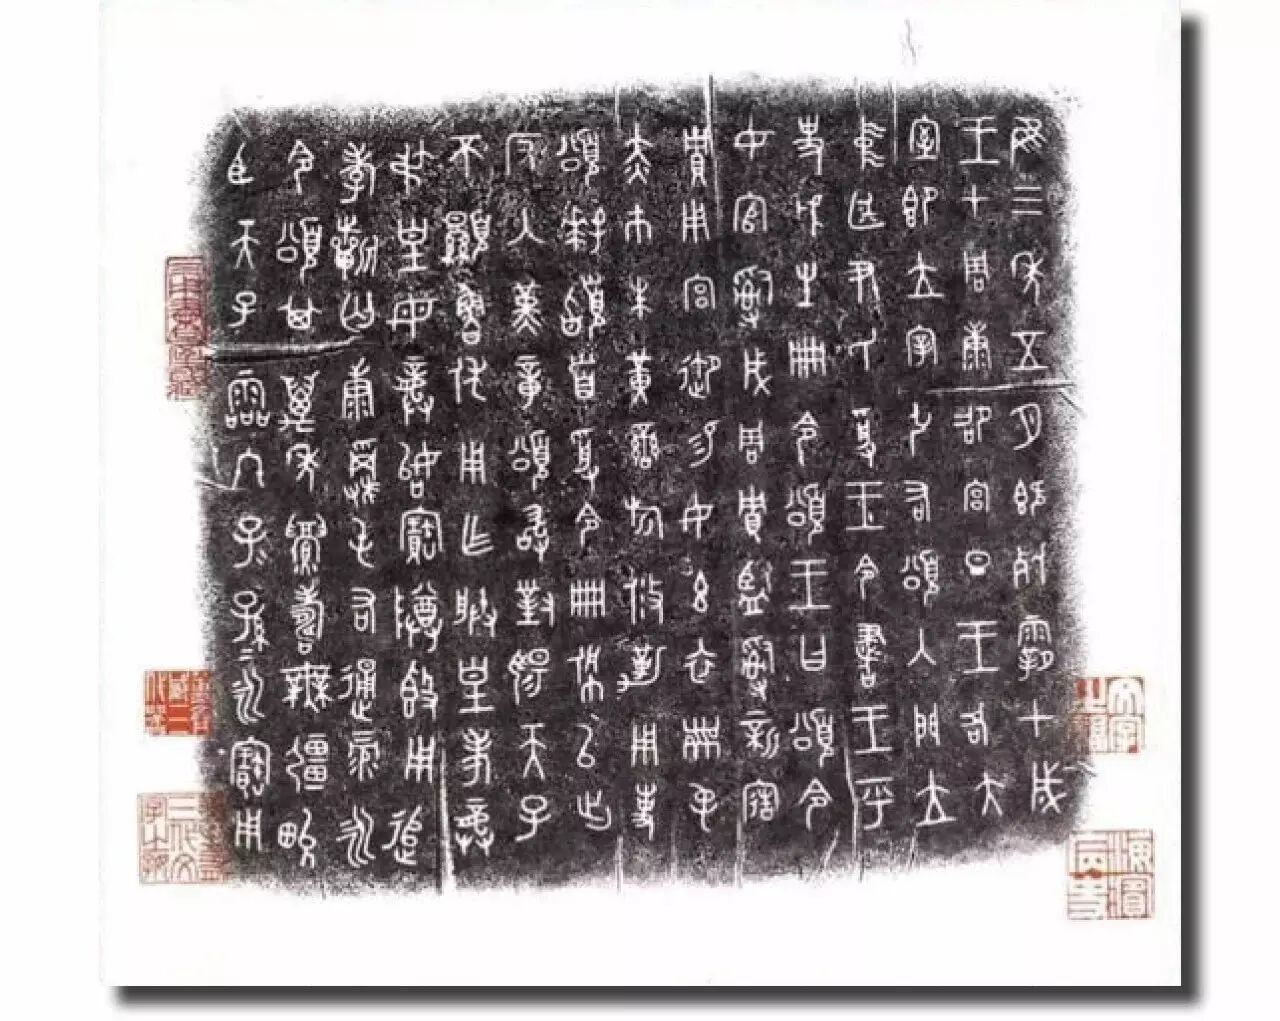 隹三年五月既死霸甲戌
王才周康卲宮旦王各大
室即立宰弘右頌入門立
中廷尹氏受王令書王乎
史虢生冊令頌王曰頌令
女官𤔲成周貯監𤔲新寤
貯用宮御易女玄衣黹屯
赤巿朱黃䜌旂攸勒用事
頌拜𩒨首受令冊佩以出
反入堇章頌敢對揚天子
不顯魯休用乍朕皇考龏
弔皇母龏姒寶尊𣪘用追
孝𣄨匄康𩁹屯右通彔永
令頌其萬年眉壽無疆畯
臣天子霝冬子=孫=永寶用